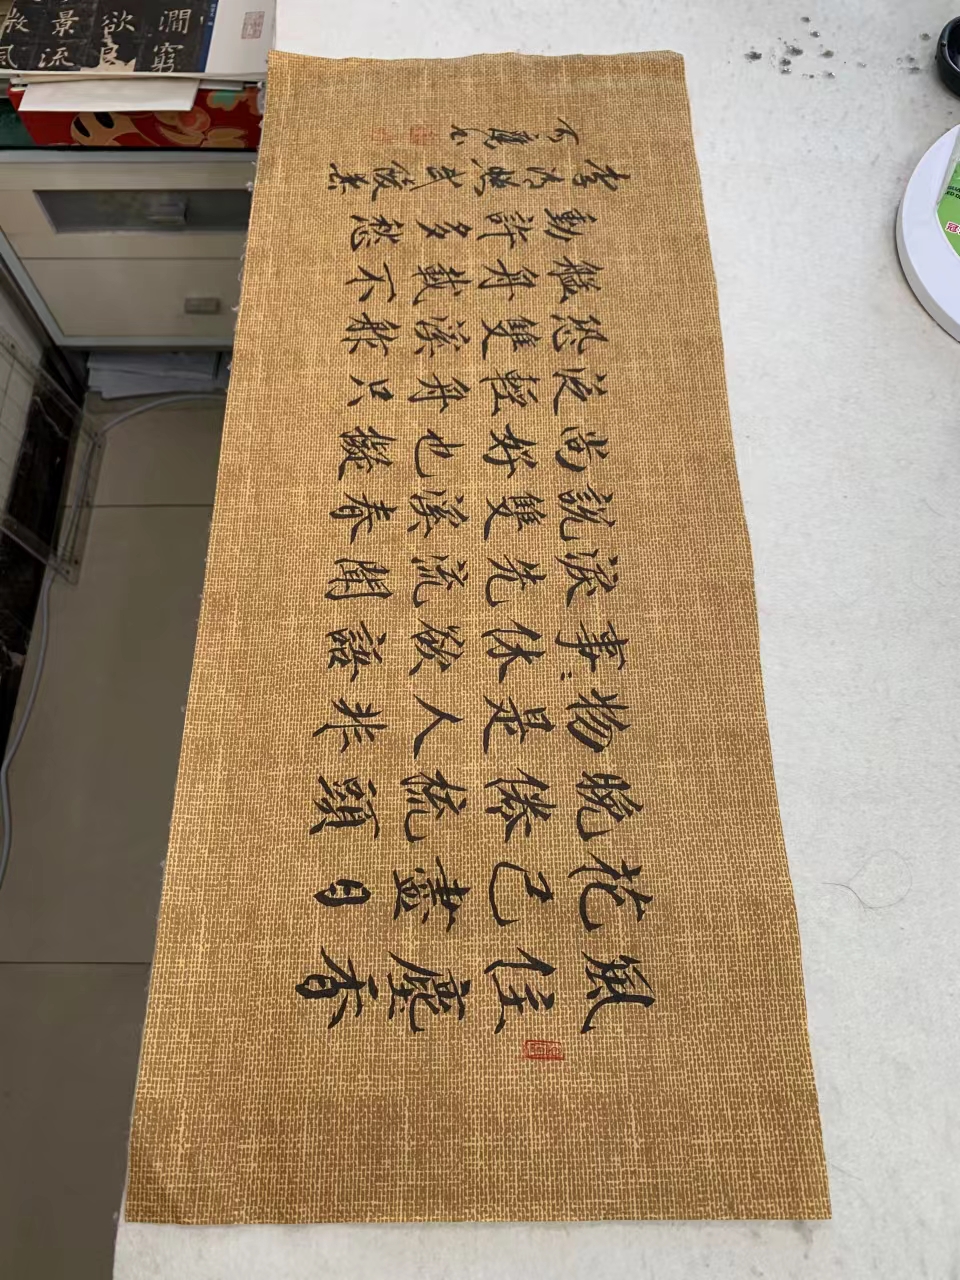 風住塵香
花已盡日
晚倦梳頭
物是人非
事〻休欲語
淚先流聞
說雙溪春
尚好也擬
泛輕舟只
恐雙溪舴
艋舟載不
動許多愁
李清照武陵春
澗窮
欲
景流